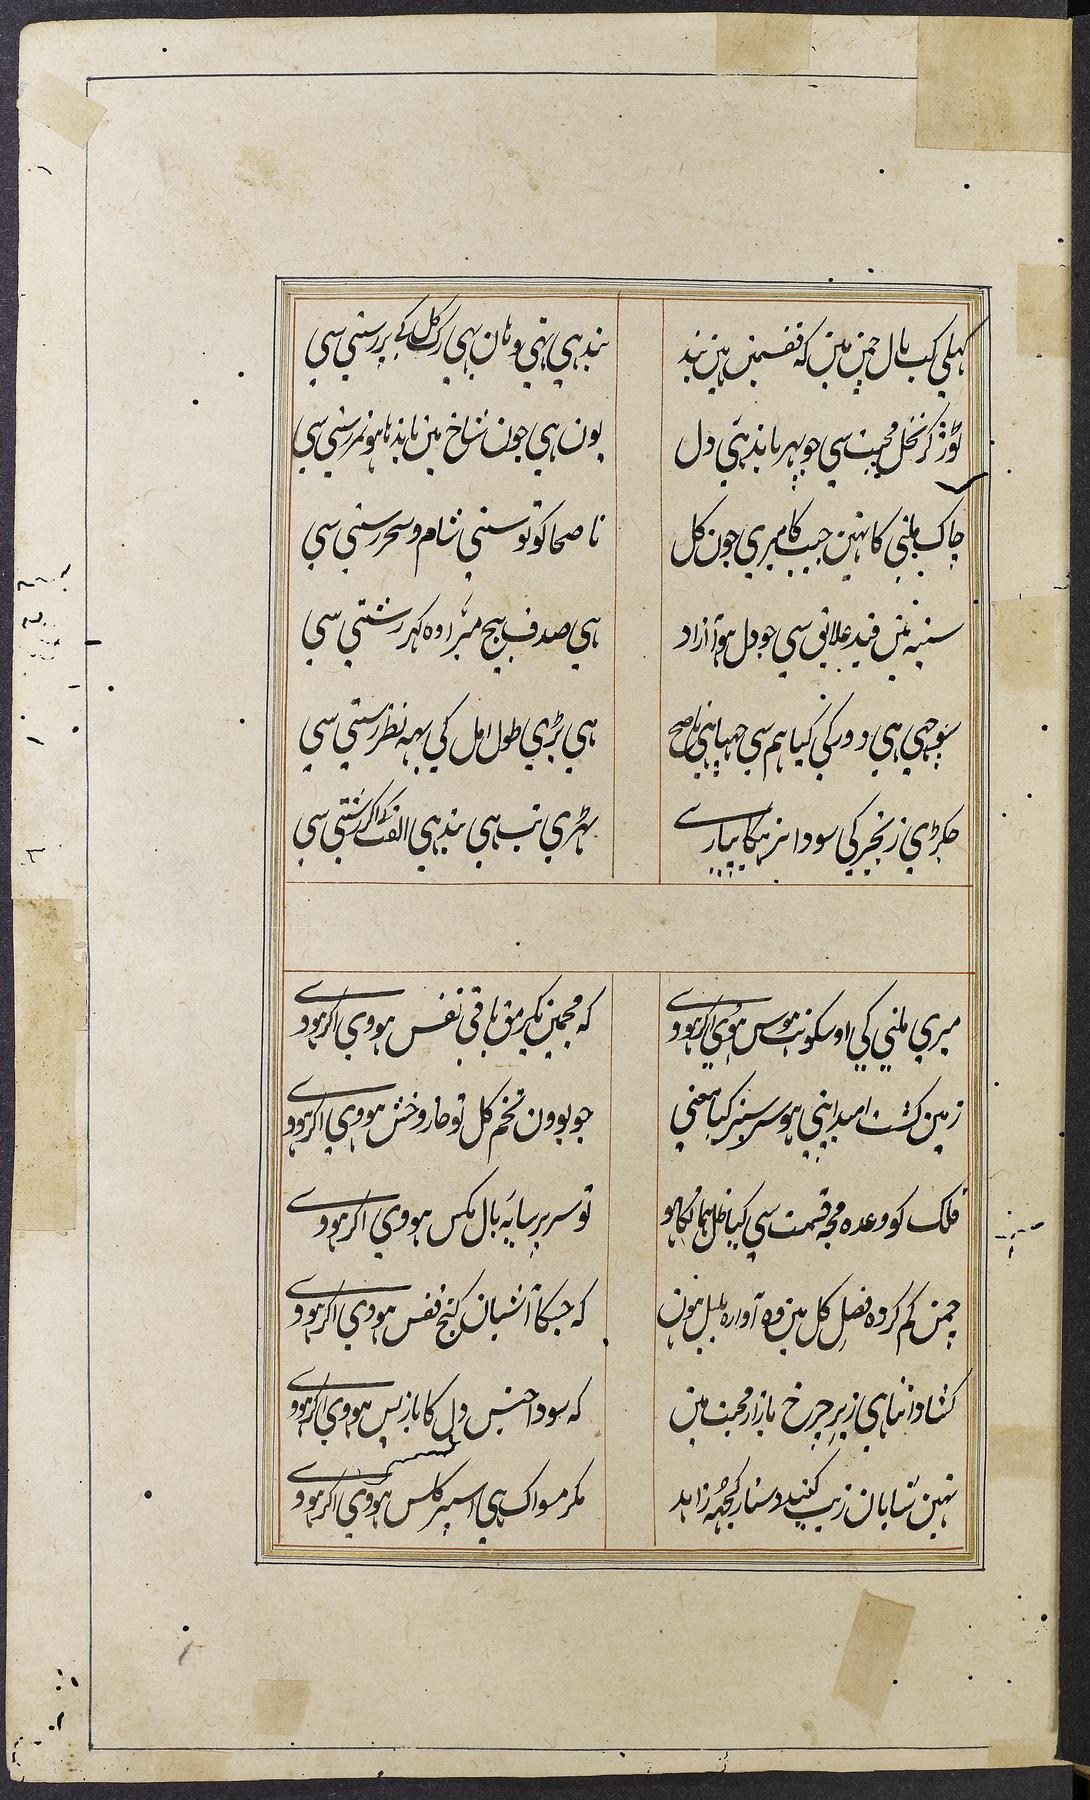 کہلی کب بال چمن مین کہ قفسمین ہین بند بندہی ہی وہان بہی رک کل کے پر رستی سی
توڑ کر نخل محبت سی جو پہر باندہی دل یون ہی جون شاخ مین باندہا ہو ثمر رستی سی
چاک ملنی کا نہین جیب کا میری جون کل ناصحا کو تو سنی شام و سحر رستی سی
سینہ مین قید علایق سی جو دل ہوا آزاد ہی صدف بیج مبرا وہ کہر رشتی سی
سوجہی ہی دور کی کیا ہم سی چہپا اپنی ناصح ہی بڑی طول امل کی یہہ نظر رستی سی
جکڑی زنجیر کی سودا نہ پیارے تہڑی تب ہی بندہی الفت کے اکر رشتی سی
میری ملنی کی اوسکو نت ہوس ہووی اکر ہووے کہ مجمین یک رمق باقی نفس ہووی اکر ہووے
زمین کشت امید اپنی ہو سر سبز کیا معنی جو بوون تخم کل تو خار و خس ہووی اکر ہووے
فلک کو وعدہ مجہ قسمت سی کیا ظل ہما کا ہو تو سر پر سایہ بال مکس ہووی اکر ہووے
چمن کم کردہ فصل کل مین وہ آوارہ بلبل ہون کہ جسکا آشیان کنج قفس ہووی اکر ہووے
کشاد اتنا ہی زیر چرخ بازار محبت مین کہ سودا جنس دل کا باز پس ہووی اکر ہووے
نہین شایان زیب کنبد دستار کچہہ زاہد مکر مسواک ہی اسپر کلس ہووی اکر ہووے